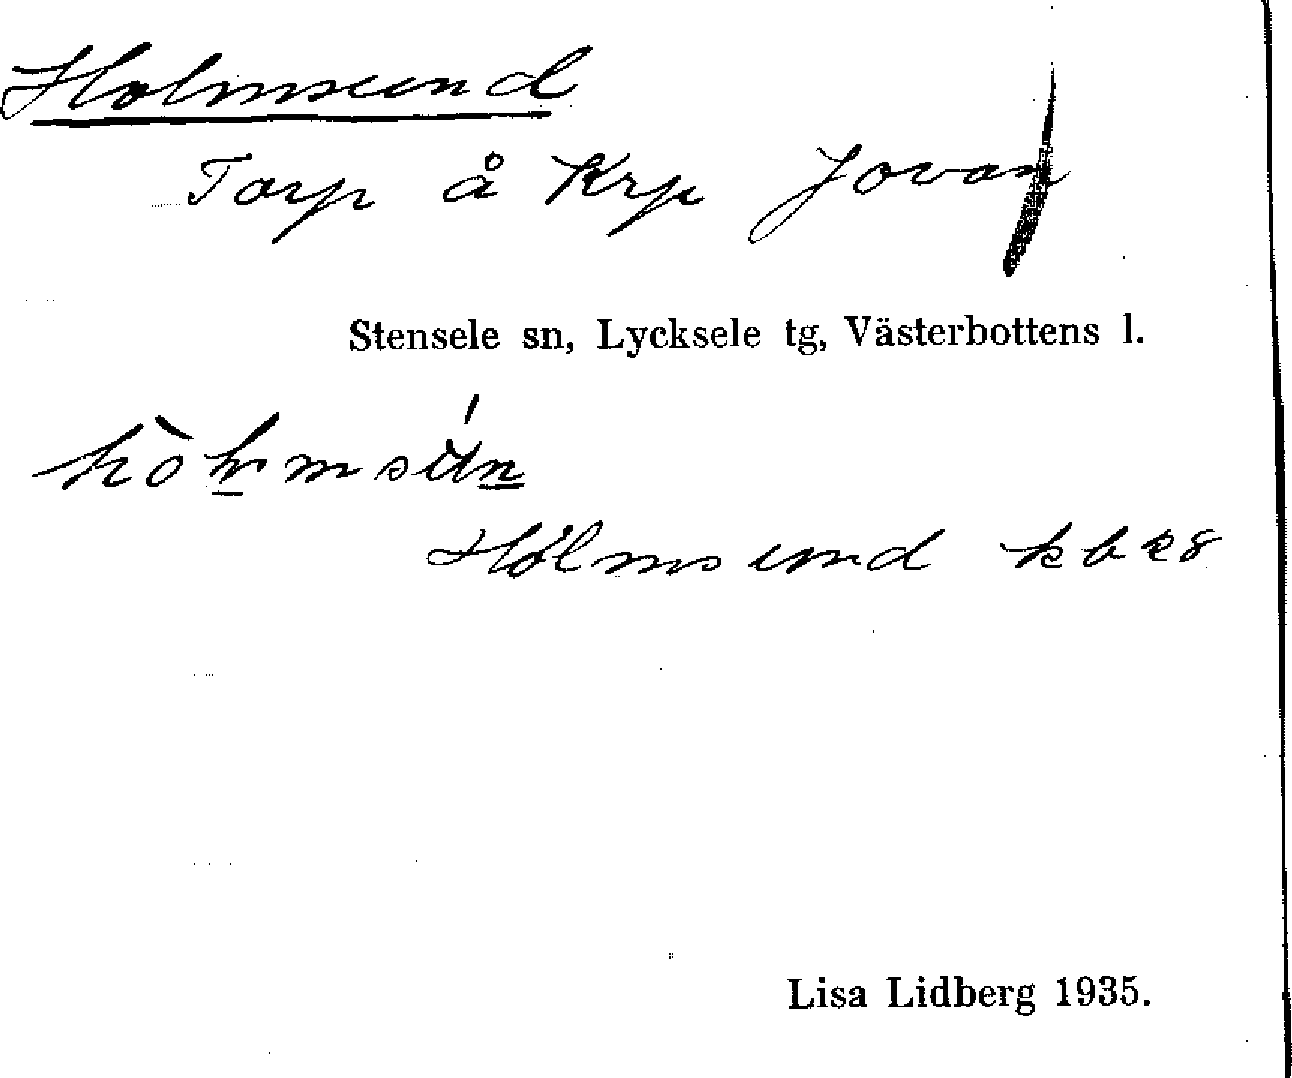 Holmsund
Torp å Krp Jovan
Stensele sn, Lycksele tg, Västerbottens l.
Holmsund kb 28
Lisa Lidberg 1935.